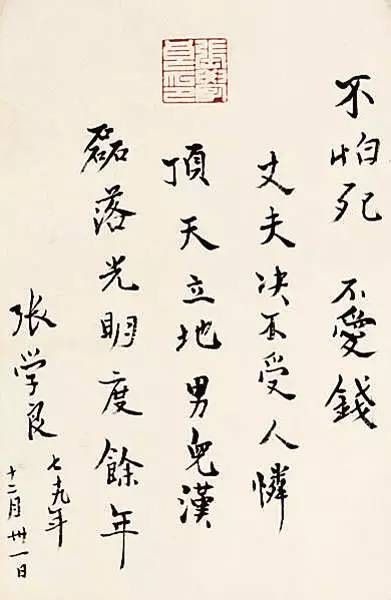 不怕死 不愛錢
丈夫决不受人憐
頂天立地男兒漢
磊落光明度餘年
張学良
七十九年
十二月卅一日
張學良印